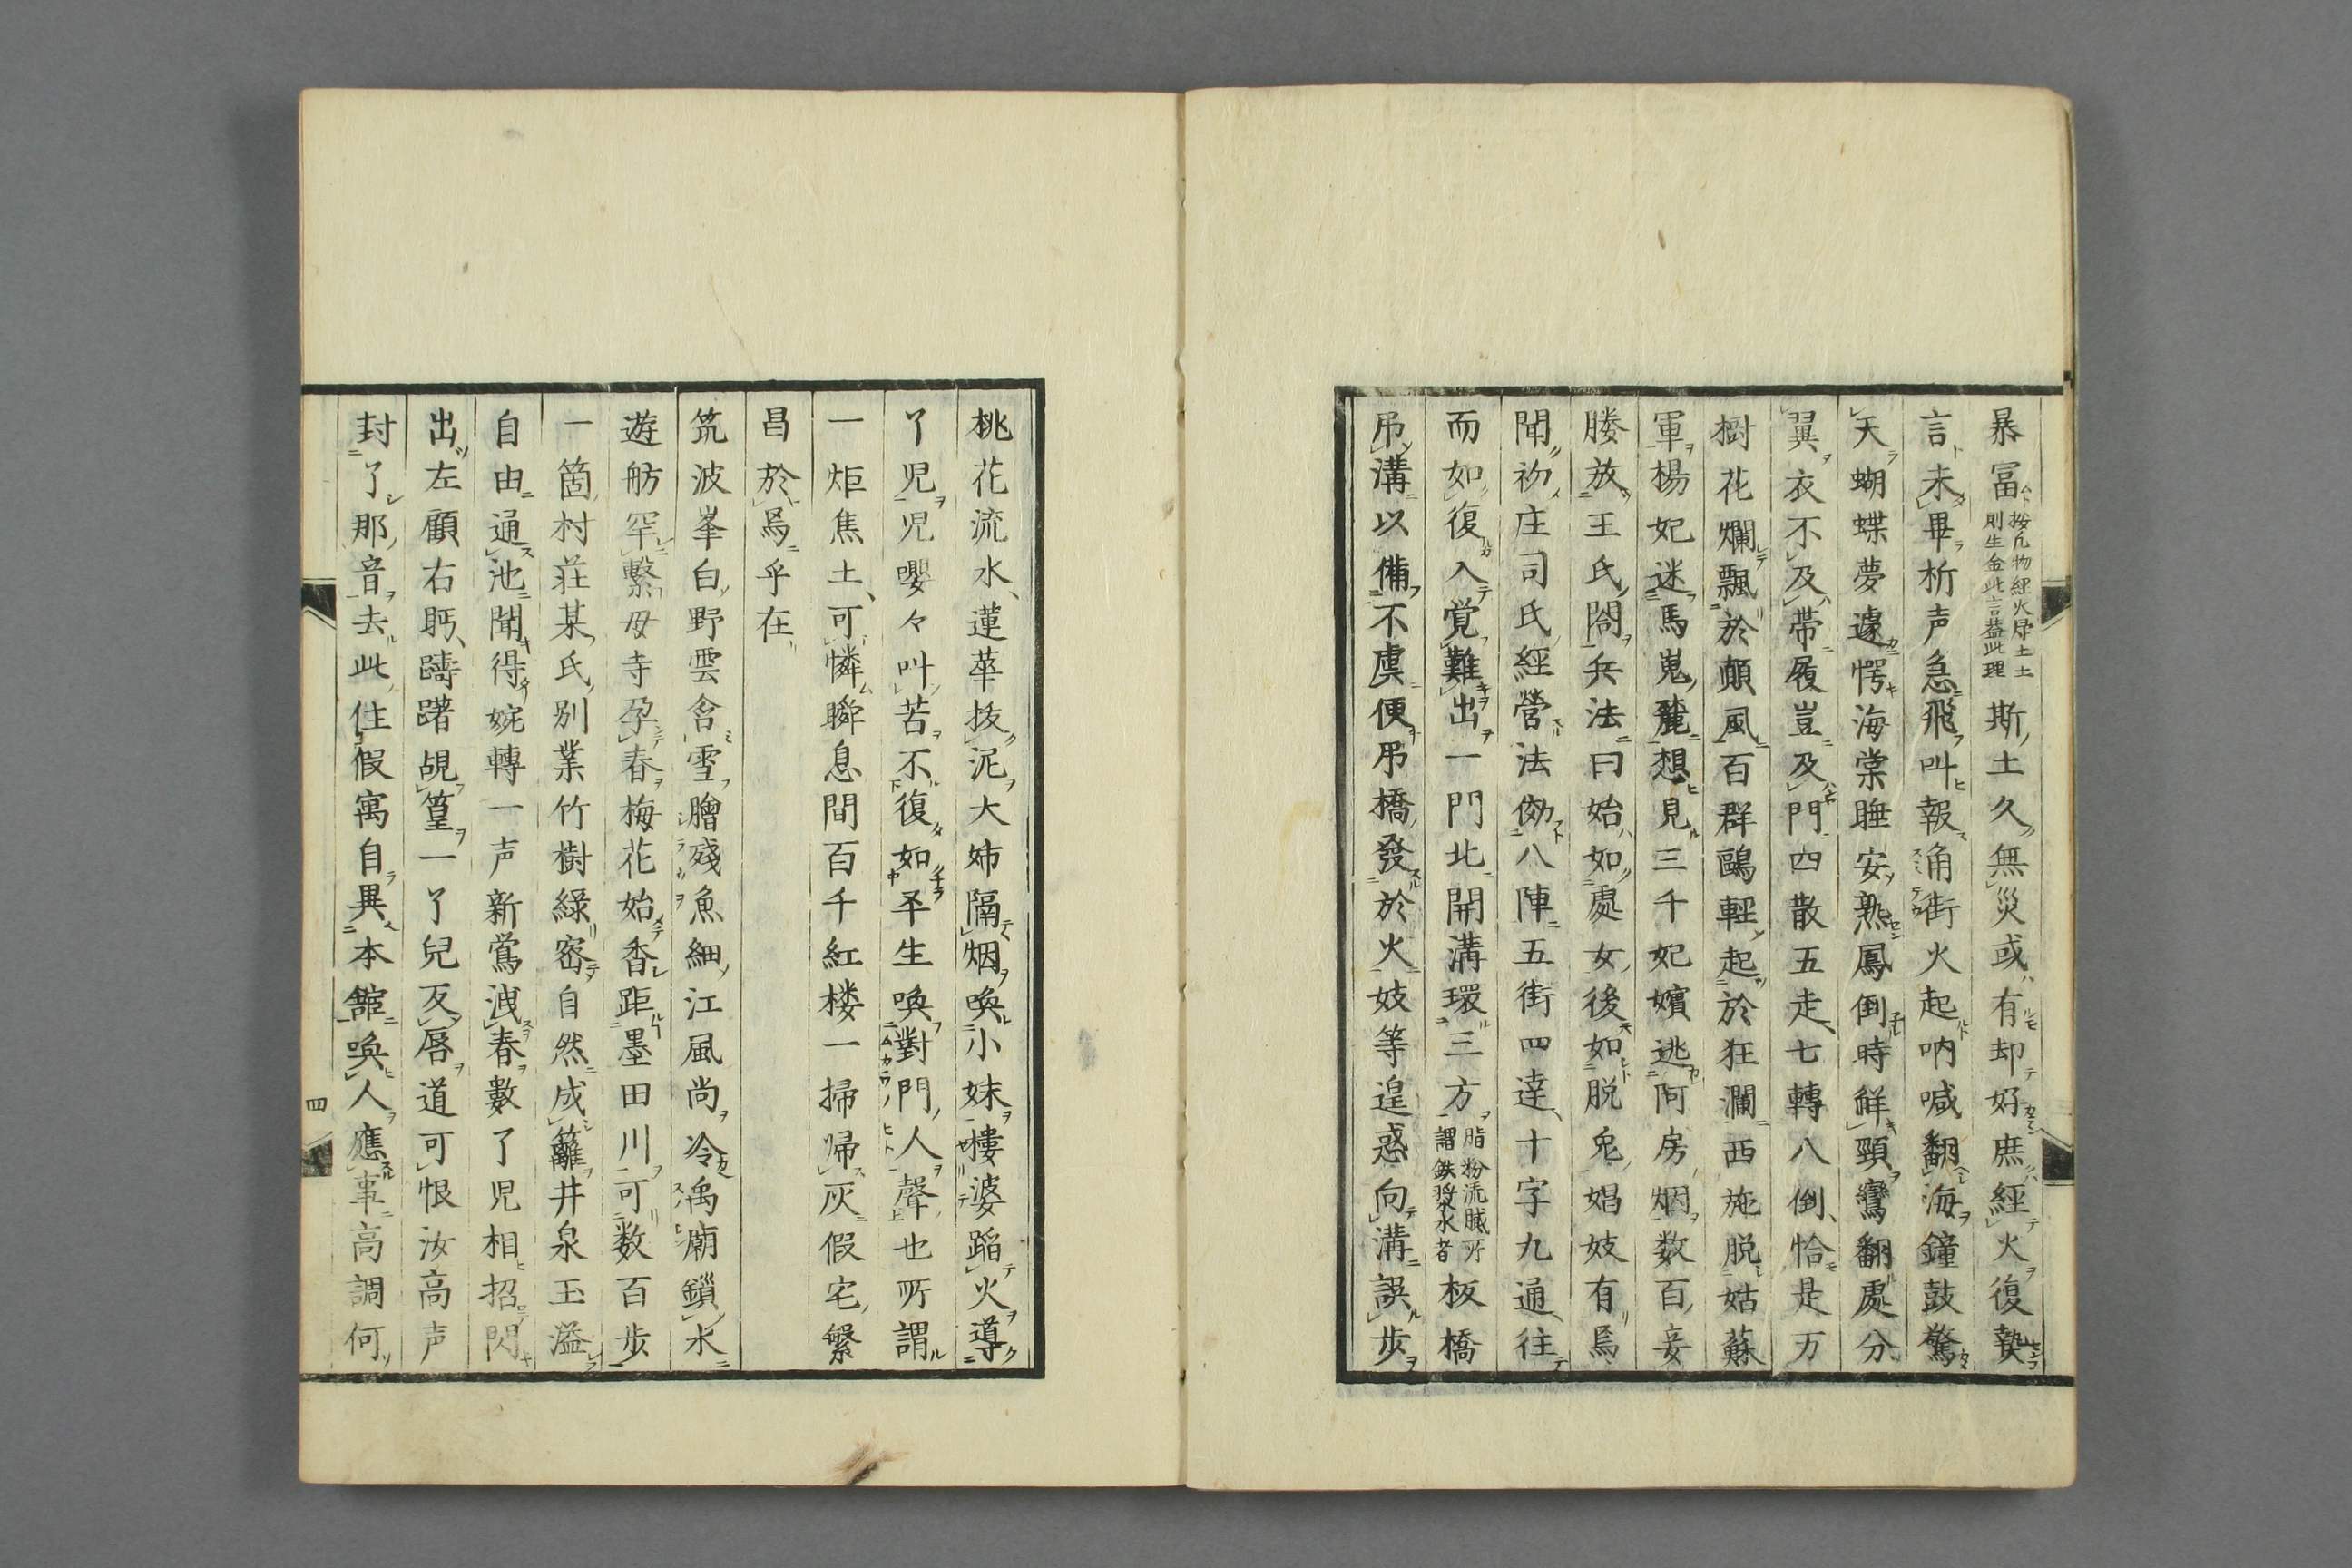 暴富按凡物經火歸土土則生金此言葢此理斯土久無災或有却好庶經火復斃
言未畢柝声急飛叫報角街火起吶喊翻海鐘鼓驚
天蝴蝶夢遽愕海棠睡安熟鳳倒時鮮頸鸞翻處分
翼衣不及帯履豈及門四散五走七轉八倒恰是万
樹花爛飄於顛風百群鷗輕起於狂瀾西施脱姑蘇
軍楊妃迷馬嵬麓想見三千妃嬪逃阿房烟数百妾
媵放王氏閤兵法曰始如處女後如脱兎娼妓有焉
聞初庄司氏經營法倣八陣五街四達十字九通往
而如復入覚難出一門北開溝環三方脂粉流膩所謂鉄漿水者板橋
吊溝以備不虞便吊橋發於火妓等遑惑向溝誤歩
桃花流水蓮華抜泥大姉隔烟喚小妹樓婆蹈火導
丫児児嚶々叫苦不復如平生喚對門人聲也所謂
一炬焦土可憐瞬息間百千紅楼一掃帰灰假宅繁
昌於焉乎在
筑波峯白野雲含雪膾殘魚細江風尚冷禹廟鎖水
遊舫罕繫母寺孕春梅花始香距墨田川可数百歩
一箇村荘某氏別業竹樹緑密自然成籬井泉玉溢
自由通池聞得婉轉一声新鴬洩春數了児相招閃
出左顧右眄躊躇覘篁一丫兒反唇道可恨汝高声
封了那音去此住假寓自異本舘喚人應事高調何
四